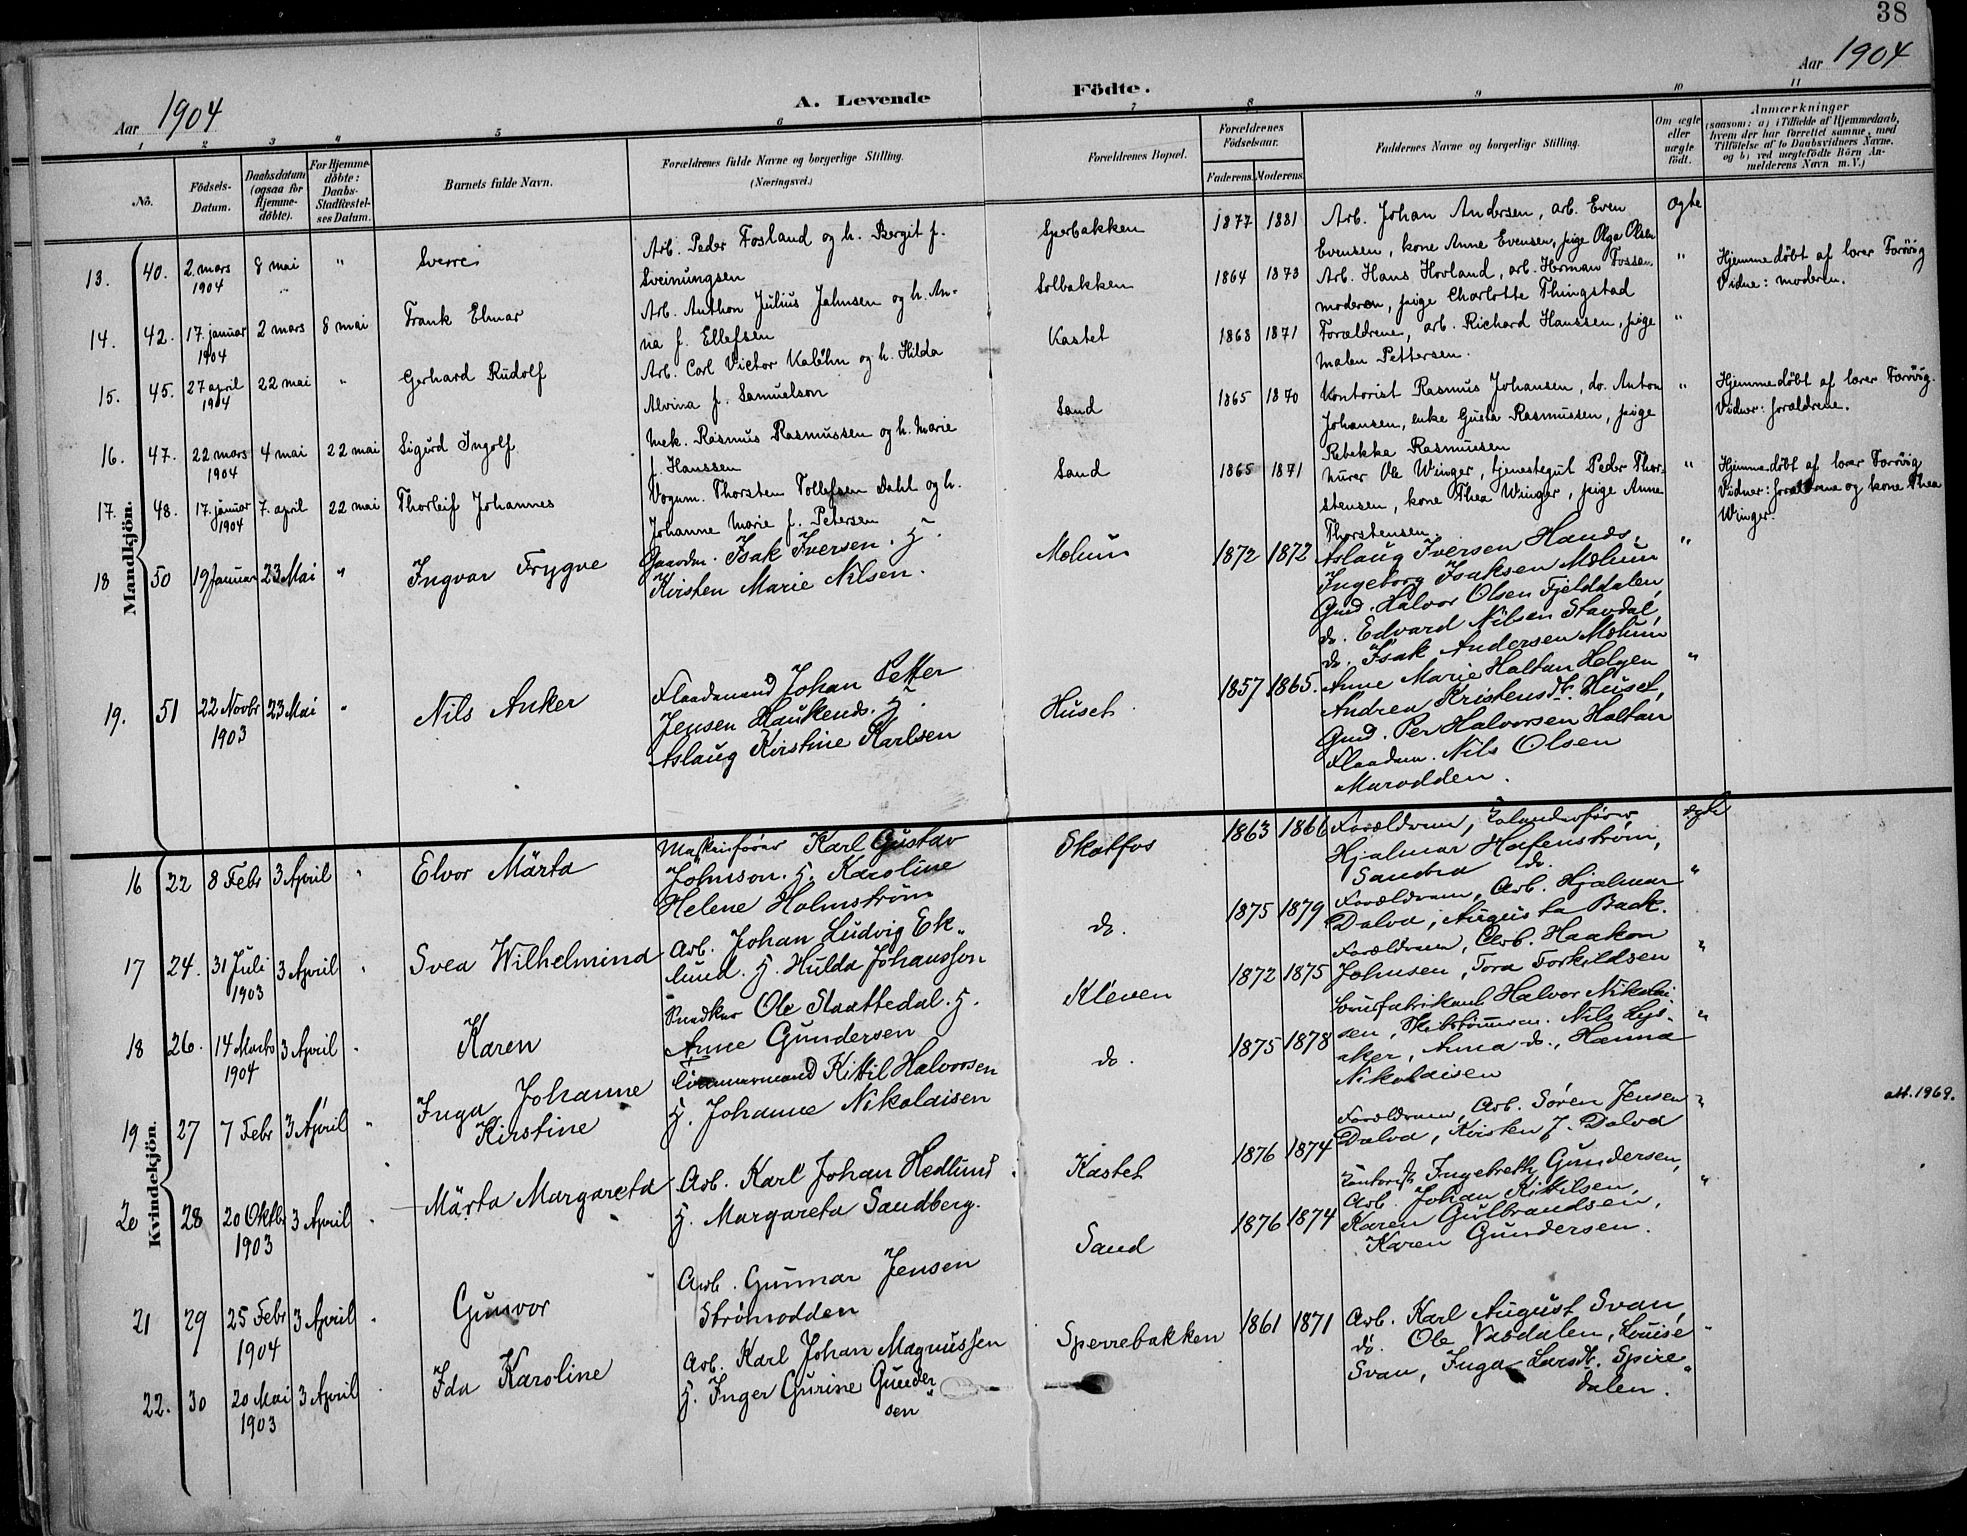 38
Aar 1904
A. Levende Födte.
Aar 1904
1 2 3 4 5 6 7 8 9 10 11
No.
Födsels-Datum.
Daabsdatum (ogsaa for Hjemme-döbte).
For Hjemme-döbte: Daabs-Stadfæstel-ses Datum.
Barnets fulde Navn.
Forældrenes fulde Navne og borgerlige Stilling. (Næringsvei.)
Forældrenes Bopæl.
Forældrenes Födselsaar.
Faderens. Moderens.
Faddernes Navne og borgerlige Stilling.
Om ægte eller uægte født.
Anmærkninger
(saasom: a) i Tilfælde af Hjemmedaab, hvem der har forrettet samme, med Tilföielse af to Daabsvidners Navne. og b) ved uægtefödte Börn An-melderens Navn m. V.)
Mandkjön.
13. 40. 2. mars 1904 8 mai " Sverre
Arb. Peder Fosland og h. Bergit f.
Sveinungsen
Sperbakken 1877 1881
Arb. Johan Andersen, arb. Even
Evensen, kone Anne Evensen, pige Olga Olsen
ægte
14. 42. 17. januar 1904 2 mars 8 mai Frank Elmar
Arb. Anthon Julius Jahnsen og h. An-
na f. Ellefsen
Solbakken 1864 1873
Arb. Hans Hovland, arb. Herman Fossan
moderen, pige Charlotte Thingstad
"
Hjemmedöbt af lærer Farövig
Vidne: moderen.
15. 45. 27 april 1904 22 mai " Gerhard Rudolf
Arb. Carl Victor Kaböhn og h. Hilda
Alvina f. Samuelson
Kastet 1868 1871
Forældrene, arb. Richard Hanssen, pige
Malen Pettersen.
"
16. 47. 22 mars 1904 4 mai 22 mai Sigurd Ingolf
Mek. Rasmus Rasmussen og h. Marie
f. Hanssen
Sand 1865 1870
Kontorist Rasmus Johansen, do. Anton
Johansen, enke Gusta Rasmussen, pige
Rebekke Rasmussen
"
Hjemmedöbt af lærer Farövig.
Vidner: forældrene.
17. 48. 17. januar 1904 7. april 22 mai Thorleif Johannes
Vognm. Thorsten Tollefsen Dahl og h.
Johanne Marie f. Petersen
Sand 1865 1871
Murer Ole Winger, tjenestegut Peder Thor-
stensen, kone Thea Winger, pige Anne
Thorstensen
"
Hjemmedöbt af lærer Farövig
Vidner: forældrene og kone Thea
Winger.
18 50 19 Januar 23 Mai " Ingvar Trygve
Gaardm. Isak Iversen. H.
Kirsten Marie Nilsen.
Mælum 1872 1872
Aslaug Iversen Hands,
Ingeborg Isaksen Mælum
Gmd. Halvor Olsen Fjelddalen,
do. Edvard Nilsen Stavdal,
do. Isak Andersen Mælum
"
19. 51 22 Novbr 1903 23 Mai " Nils Anker
Flaadmand Johan Petter
Jensen Haukends. H.
Aslaug Kirstine Karlsen
Huset 1857 1865.
Anne Marie Haltan Helgen
Andrea Kristensdt. Huset,
Gmd. Per Halvorsen Haltan
Flaadm. Nils Olsen
Marodden.
"
Kvindekjön.
16 22 8 Febr 3 April " Elvor Märta
Maskinförer Karl Gustav
Johnson. H. Karoline
Helene Holmström
Skotfos 1863 1866
Forældrene,
Hjalmar Hafenström,
Sandra do.
ægte
17 24. 31 Juli 1903 3 April " Svea Wilhelmina
Arb. Johan Ludvig Ek-
lund. H. Hulda Johansson
do. 1875 1879
Forældrene, Arb. Hjalmar
Dalva, Augusta Back.
"
18 26. 14 Marts 1904 3 April " Karen
Snedker Ole Slaattedal. H.
Anne Gundersen
Kleven 1872 1875
Forældrene, Arb. Haakon
Johnsen, Tora Torkildsen
"
19 27 7 Febr 3 April " Inga Johanne
Kirstine
Tömmermand Kittil Halvorsen
H. Johanne Nikolaisen
do. 1875 1878
Halvor Nikolai
sen, Skibstömmerm. Nils
aker, Anna do., Hanna
Nikolaisen
"
att. 1969.
20 28 20 Oktbr 1903 3 April " Märta Margareta
Arb. Karl Johan Hedlund
H. Margareta Sandberg.
Kastet 1876 1874
Forældrene, Arb. Sören Jensen
Dalva, Kirsten J. Dalva
"
21 29 25 Febr 1904 3 April " Gunvor
Arb. Gunnar Jensen
Strömodden
Sand 1876 1874
Kontorist Ingebreth Gundersen,
Arb. Johan Kittilsen,
Karen Gulbrandsen,
Karen Gundersen.
"
22. 30 20 Mai 1903 3 April " Ida Karoline
Arb. Karl Johan Magnussen
H. Inger Gurine Gunder-
sen
Sperrebakken 1861 1871
Arb. Karl August Svan,
do. Ole Vaadalen, Louise
Svan, Inga Larsdt. Spire-
dalen.
"